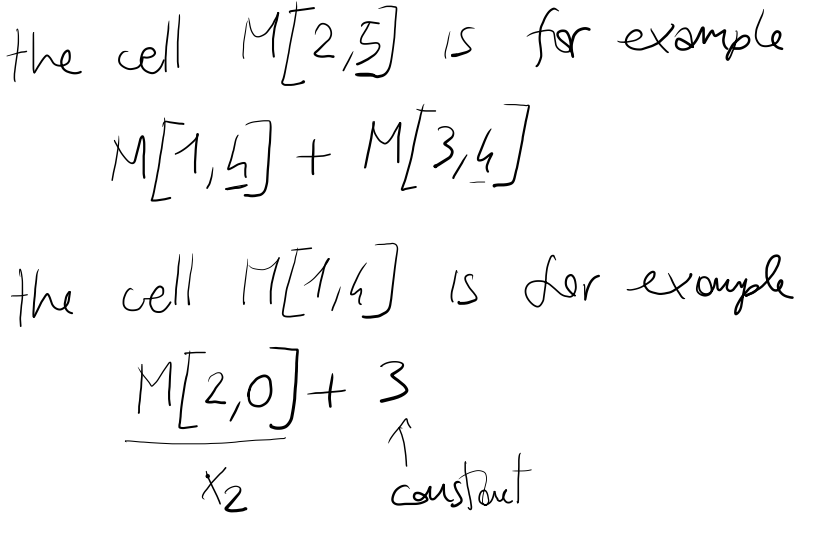 the cell M[2,5] is for example
M[1,4] + M[3,4]
the cell M[1,4] is for example
M[2,0] + 3
x2 constant